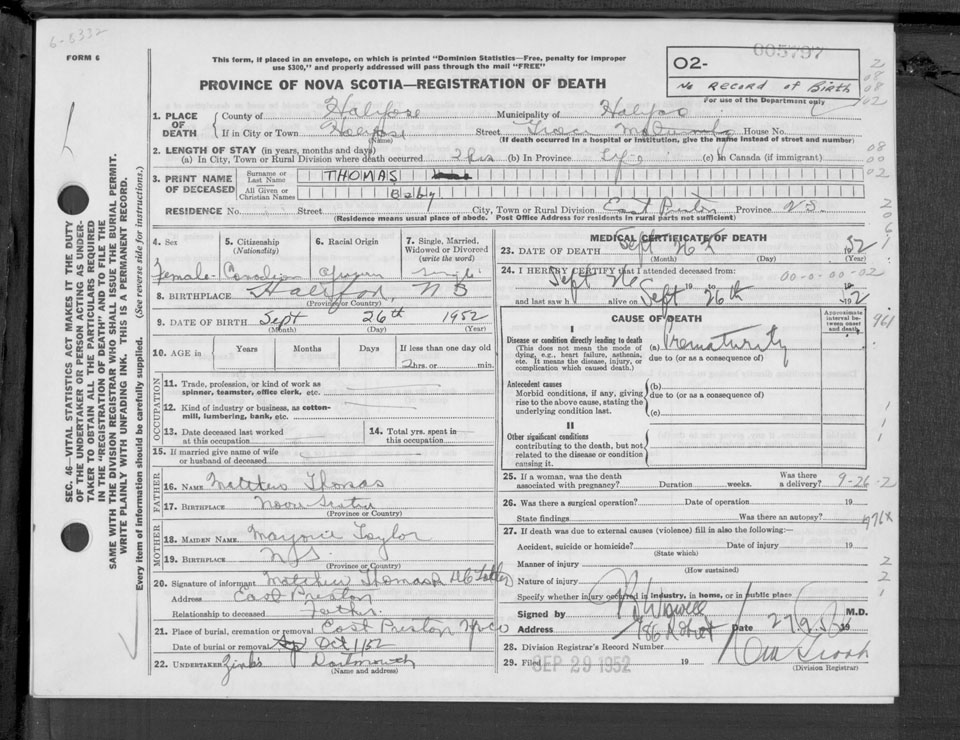 6-6332
FORM 6
This form, if placed in an envelope, on which is printed "Dominion Statistics—Free, penalty for improper
use $300," and properly addressed will pass through the mail "FREE"
005797
PROVINCE OF NOVA SCOTIA—REGISTRATION OF DEATH
02-
No RECORD of Birth
For use of the Department only
1. PLACE OF DEATH
County of Halifax Municipality of Halifax
If in City or Town Halifax Street Grace Maternity House No.
(Name) (If death occurred in a hospital or institution, give the name instead of street and number)
2. LENGTH OF STAY (in years, months and days)
(a) In City, Town or Rural Division where death occurred 2 hrs (b) In Province Life (c) in Canada (if immigrant)
3. PRINT NAME OF DECEASED
Surname or Last Name THOMAS
All Given or Christian Names Baby
RESIDENCE No. Street City, Town or Rural Division East Preston Province N.S.
(Residence means usual place of abode. Post Office Address for residents in rural parts not sufficient)
4. Sex
Female
5. Citizenship (Nationality)
Canadian
6. Racial Origin
African
7. Single, Married, Widowed or Divorced (write the word)
Single
8. BIRTHPLACE Halifax, N S
(Province or Country)
9. DATE OF BIRTH Sept 26th 1952
(Month) (Day) (Year)
10. AGE in Years Months Days If less than one day old
2 hrs. or min.
OCCUPATION
11. Trade, profession, or kind of work as
spinner, teamster, office clerk, etc.
12. Kind of industry or business, as cotton-
mill, lumbering, bank, etc.
13. Date deceased last worked
at this occupation
14. Total yrs. spent in
this occupation
15. If married give name of wife
or husband of deceased
FATHER
16. NAME Matthew Thomas
17. BIRTHPLACE Nova Scotia
(Province or Country)
MOTHER
18. MAIDEN NAME Marjorie Taylor
19. BIRTHPLACE N.S.
(Province or Country)
20. Signature of informant Matthew Thomas
Address East Preston
Relationship to deceased Father
21. Place of burial, cremation or removal East Preston
Date of burial or removal Oct 1/52
22. UNDERTAKER Zink's Dartmouth
(Name and address)
MEDICAL CERTIFICATE OF DEATH
23. DATE OF DEATH Sept 26th 1952
(Month) (Day) (Year)
24. I HEREBY CERTIFY that I attended deceased from:
00-0-00-02
Sept 26 19
and last saw h alive on Sept 26th 1952
CAUSE OF DEATH
Approximate interval between onset and death
I
Disease or condition directly leading to death
(This does not mean the mode of
dying, e.g., heart failure, asthenia,
etc. It means the disease, injury, or
complication which caused death.)
(a) Prematurity
due to (or as a consequence of)
Antecedent causes
Morbid conditions, if any, giving
rise to the above cause, stating the
underlying condition last.
(b)
due to (or as a consequence of)
(c)
II
Other significant conditions
contributing to the death, but not
related to the disease or condition
causing it.
25. If a woman, was the death
associated with pregnancy? Duration weeks. Was there a delivery? 9-26-2
26. Was there a surgical operation? Date of operation 19
State findings Was there an autopsy? 776X
27. If death was due to external causes (violence) fill in also the following:—
Accident, suicide or homicide? Date of injury 19
(State which)
Manner of injury
(How sustained)
Nature of injury
Specify whether injury occurred in industry, in home, or in public place
Signed by M.D.
Address Date 19
28. Division Registrar's Record Number
29. Filed SEP 29 1952 19
(Division Registrar)
SEC. 46—VITAL STATISTICS ACT MAKES IT THE DUTY
OF THE UNDERTAKER OR PERSON ACTING AS UNDER-
TAKER TO OBTAIN ALL THE PARTICULARS REQUIRED
IN THE "REGISTRATION OF DEATH" AND TO FILE THE
SAME WITH THE DIVISION REGISTRAR WHO SHALL ISSUE THE BURIAL PERMIT.
WRITE PLAINLY WITH UNFADING INK. THIS IS A PERMANENT RECORD.
Every item of information should be carefully supplied. (See reverse side for instructions.)
2
08
08
02
08
00
02
2
0
6
1
961
1
1
1
2
2
1